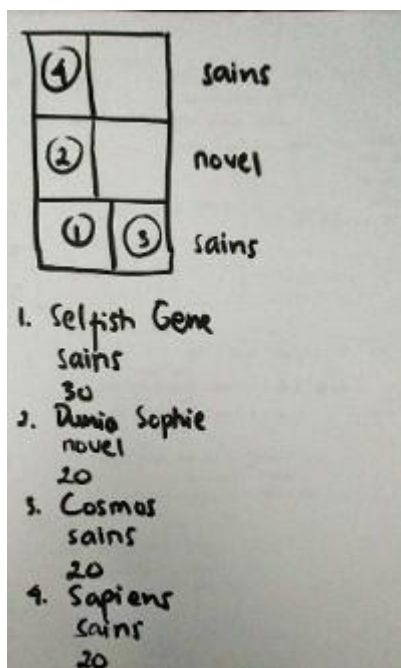 4 sains
2 novel
1 3 sains
1. Selfish Gene
sains
30
2. Dunia Sophie
novel
20
3. Cosmos
sains
20
4. Sapiens
sains
20